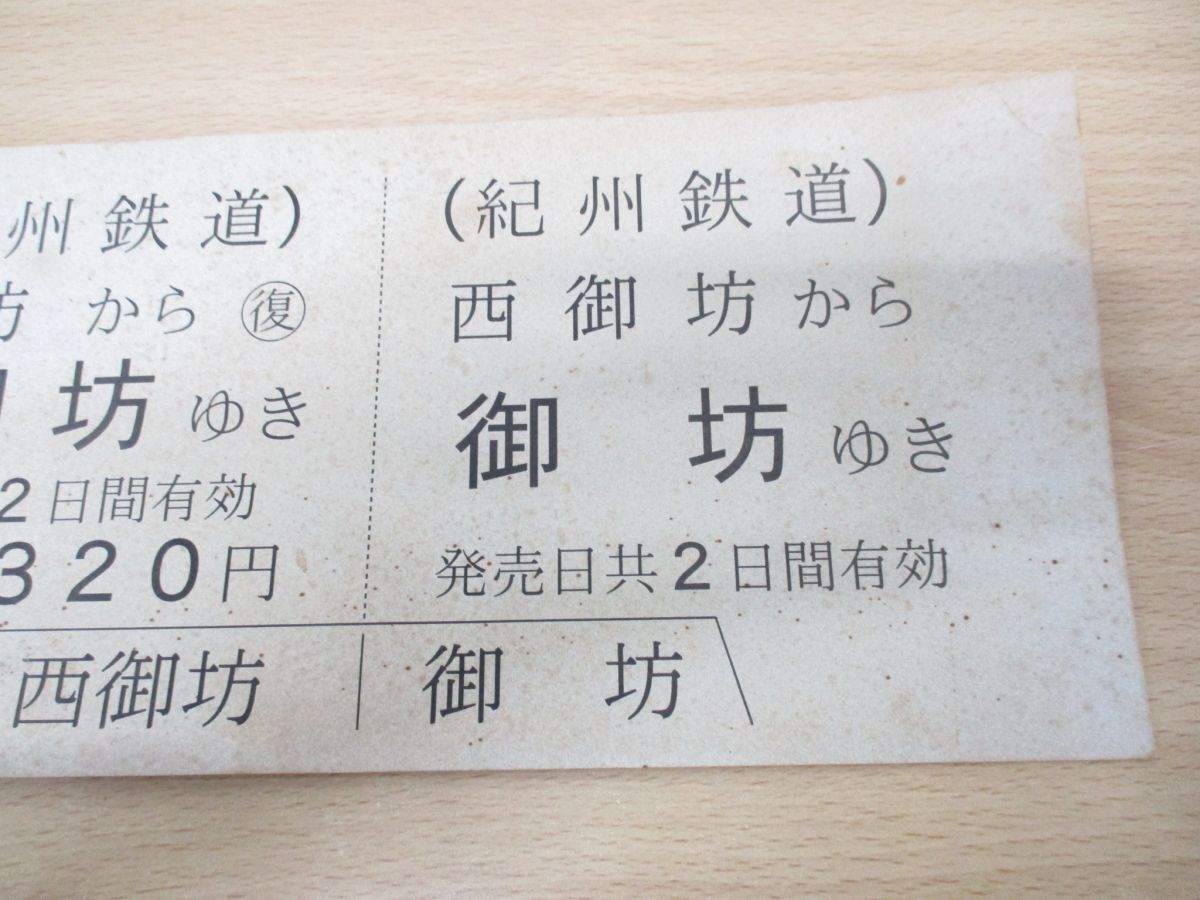 州鉄道)
坊から㊝復
坊ゆき
2日間有効
320円
西御坊
(紀州鉄道)
西御坊から
御坊ゆき
発売日共2日間有効
御坊